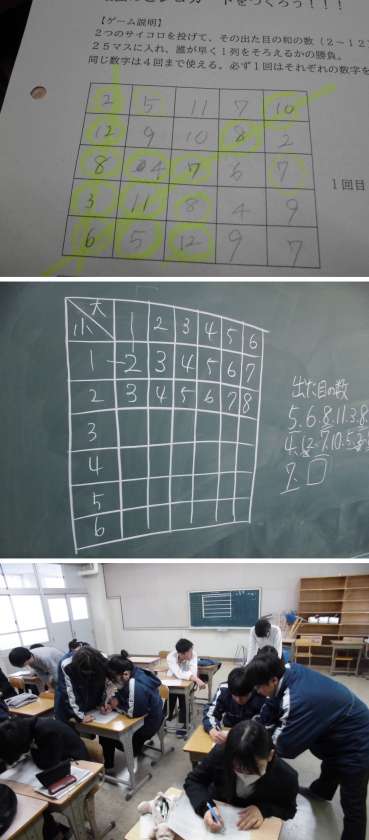 【ゲーム説明】
2つのサイコロを投げて、その出た目の和の数(2~12
25マスに入れ、誰が早く1列をそろえるかの勝負。
同じ数字は4回まで使える。必ず1回はそれぞれの数字を
2 5 11 7 10
12 9 10 8 2
8 4 7 6 7
3 11 8 4 9
6 5 12 9 7
1回目
大
小 1 2 3 4 5 6
1 2 3 4 5 6 7
2 3 4 5 6 7 8
3
4
5
6
出た目の数
5.6.8.11.3.8.
4.12.7.10.5.